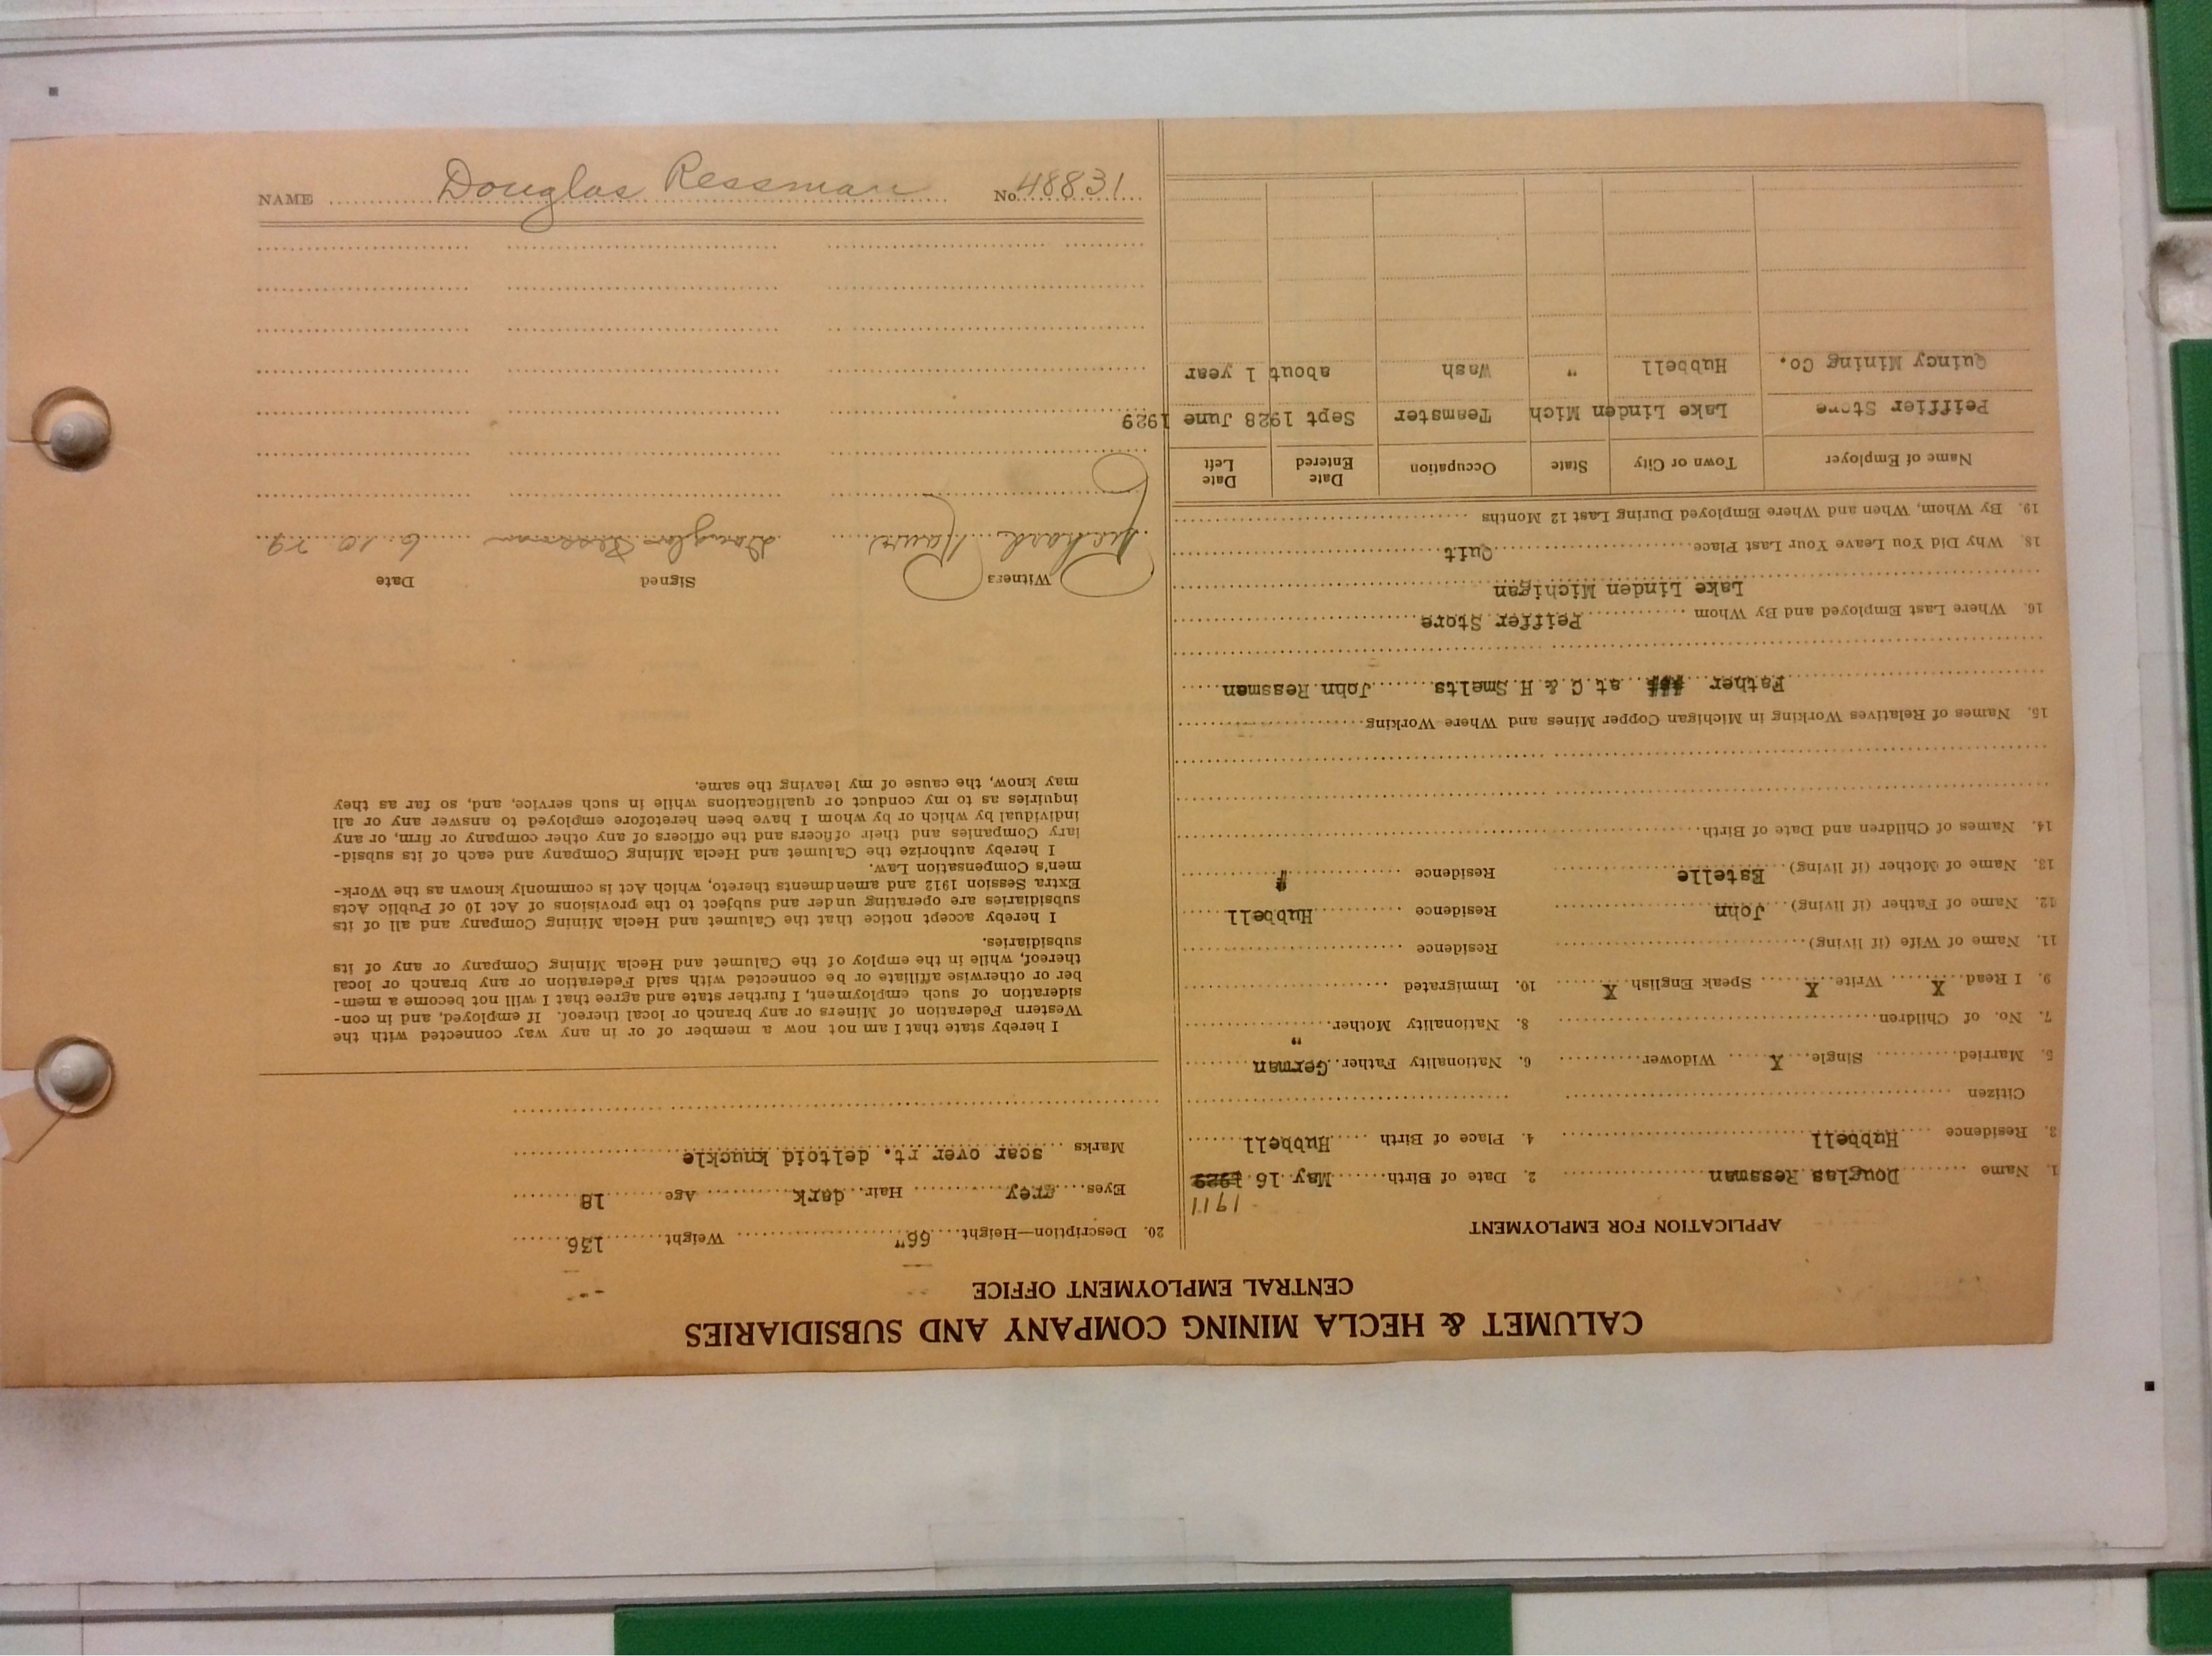 NAME Douglas Ressman No. 48831
CALUMET & HECLA MINING COMPANY AND SUBSIDIARIES
CENTRAL EMPLOYMENT OFFICE
APPLICATION FOR EMPLOYMENT
1911
1. Name Douglas Ressman 2. Date of Birth May 16 1929
3. Residence Hubbell 4. Place of Birth Hubbell
Citizen
5. Married Single X Widower 6. Nationality Father German
7. No. of Children 8. Nationality Mother "
9. I Read X Write X Speak English X 10. Immigrated
11. Name of Wife (if living) Residence
12. Name of Father (if living) John Residence Hubbell
13. Name of Mother (if living) Estelle Residence
14. Names of Children and Date of Birth
15. Names of Relatives Working in Michigan Copper Mines and Where Working
Father at C & H Smelts John Ressman
16. Where Last Employed and By Whom Peiffer Store
Lake Linden Michigan
18. Why Did You Leave Your Last Place Quit
19. By Whom, When and Where Employed During Last 12 Months
Name of Employer Town or City State Occupation Date Entered Date Left
Peiffier Store Lake Linden Mich Teamster Sept 1928 June 1929
Quincy Mining Co. Hubbell " Wash about 1 year
20. Description—Height 66" Weight 136
Eyes grey Hair dark Age 18
Marks scar over rt. deltoid knuckle
I hereby state that I am not now a member of or in any way connected with the
Western Federation of Miners or any branch or local thereof. If employed, and in con-
sideration of such employment, I further state and agree that I will not become a mem-
ber or otherwise affiliate or be connected with said Federation or any branch or local
thereof, while in the employ of the Calumet and Hecla Mining Company or any of its
subsidiaries.
I hereby accept notice that the Calumet and Hecla Mining Company and all of its
subsidiaries are operating under and subject to the provisions of Act 10 of Public Acts
Extra Session 1912 and amendments thereto, which Act is commonly known as the Work-
men's Compensation Law.
I hereby authorize the Calumet and Hecla Mining Company and each of its subsid-
iary Companies and their officers and the officers of any other company or firm, or any
individual by which or by whom I have been heretofore employed to answer any or all
inquiries as to my conduct or qualifications while in such service, and, so far as they
may know, the cause of my leaving the same.
Witness Signed Date
Richard Douglas Ressman 6.10.29